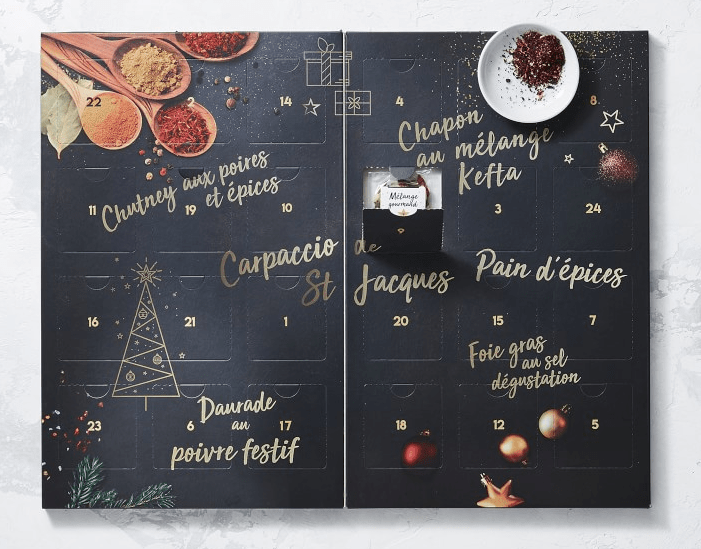 22
2
14
4
8
Chapon
au mélange
Kefta
Chutney aux poires
et épices
11
19
10
Mélange
gourmand
9
3
24
Carpaccio de
St Jacques
Pain d'épices
16
21
1
20
15
7
Foie gras
au sel
dégustation
Daurade
au
poivre festif
23
6
17
18
12
5